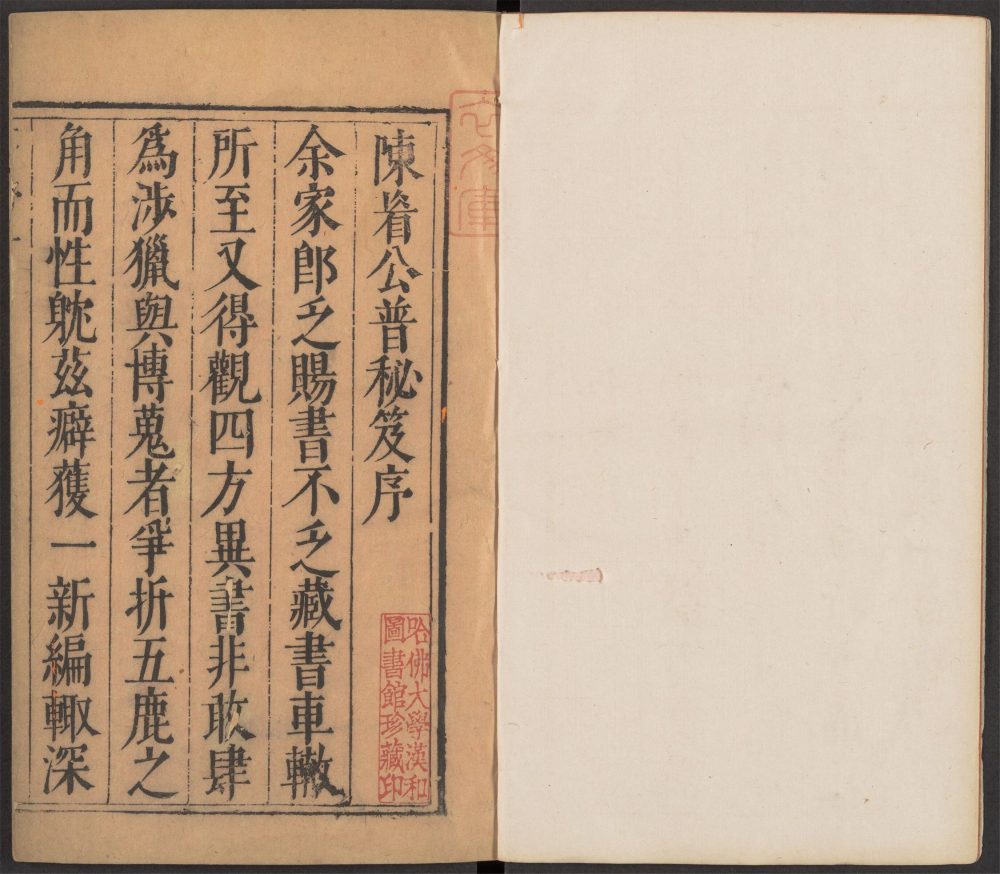 陳眉公普秘笈序
余家郎乏賜書不乏藏書車轍
所至又得觀四方異書非敢肆
爲涉獵與博蒐者爭折五鹿之
角而性躭茲癖獲一新編輙深
哈佛大學漢和
圖書館珍藏印